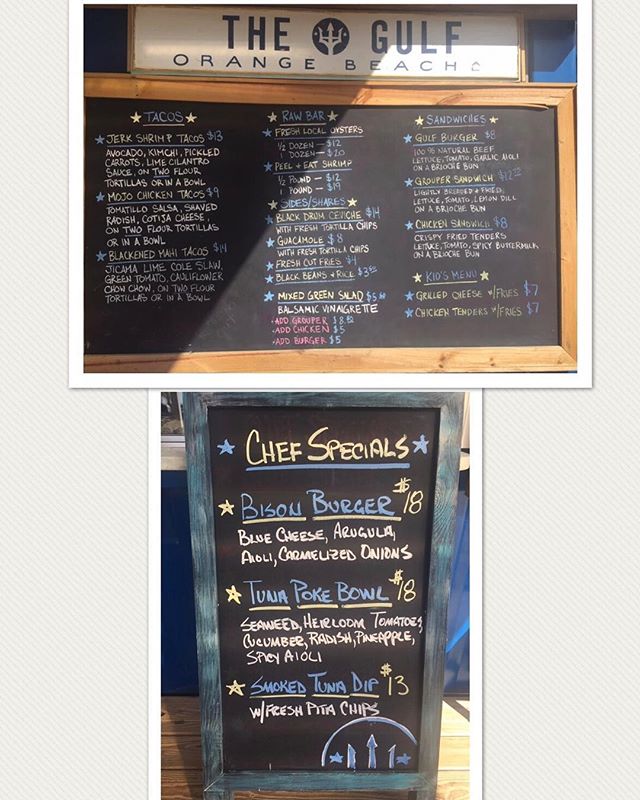 THE GULF
ORANGE BEACH
TACOS
JERK SHRIMP TACOS $13
AVOCADO, KIMCHI, PICKLED
CARROTS, LIME CILANTRO
SAUCE, ON TWO FLOUR
TORTILLAS OR IN A BOWL
MOJO CHICKEN TACOS $9
TOMATILLO SALSA, SHAVED
RADISH, COTIJA CHEESE,
ON TWO FLOUR TORTILLAS
OR IN A BOWL
BLACKENED MAHI TACOS $14
JICAMA LIME COLE SLAW
GREEN TOMATO, CAULIFLOWER
CHOW CHOW, ON TWO FLOUR
TORTILLAS OR IN A BOWL
RAW BAR
FRESH LOCAL OYSTERS
1/2 DOZEN - $12
1 DOZEN - $20
PEEL + EAT SHRIMP
1/2 POUND - $12
1 POUND - $19
SIDES/SHARES
BLACK DRUM CEVICHE $14
WITH FRESH TORTILLA CHIPS
GUACAMOLE $8
WITH FRESH TORTILLA CHIPS
FRESH CUT FRIES $4
BLACK BEANS + RICE
MIXED GREEN SALAD
BALSAMIC VINAIGRETTE
ADD GROUPER
ADD CHICKEN $5
ADD BURGER $5
SANDWICHES
GULF BURGER $8
100% NATURAL BEEF
LETTUCE, TOMATO, GARLIC AIOLI
ON A BRIOCHE BUN
GROUPER SANDWICH
LIGHTLY BREADED + FRIED,
LETTUCE, TOMATO, LEMON DILL
ON A BRIOCHE BUN
CHICKEN SANDWICH $8
CRISPY FRIED TENDERS
LETTUCE, TOMATO, SPICY BUTTERMILK
ON A BRIOCHE BUN
KID'S MENU
GRILLED CHEESE W/FRIES $7
CHICKEN TENDERS W/FRIES $7
CHEF SPECIALS
BISON BURGER $18
BLUE CHEESE, ARUGULA,
AIOLI, CARMELIZED ONIONS
TUNA POKE BOWL $18
SEAWEED, HEIRLOOM TOMATOES,
CUCUMBER, RADISH, PINEAPPLE,
SPICY AIOLI
SMOKED TUNA DIP $13
W/FRESH PITA CHIPS